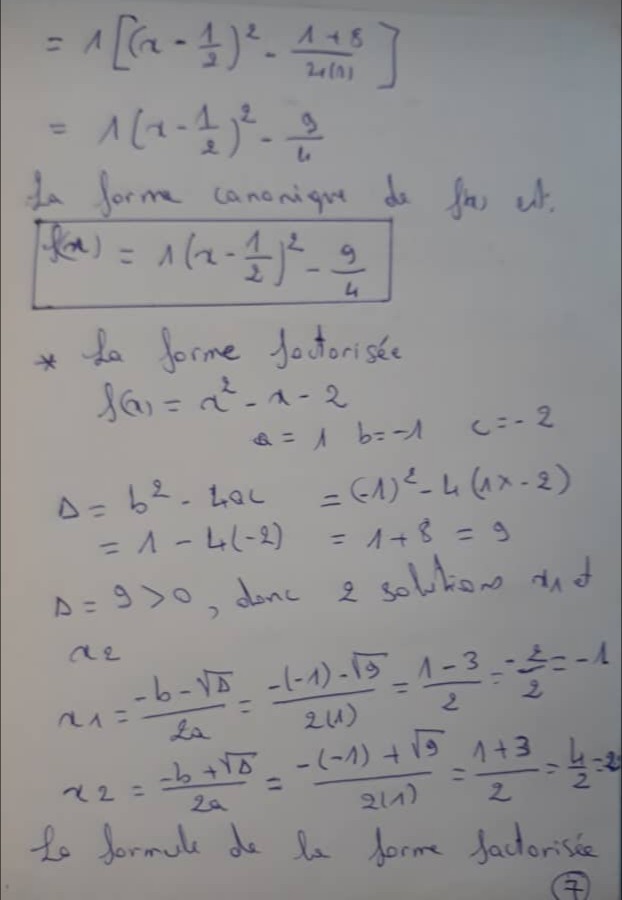 = 1[(x - 1/2)² - (1+8)/(4(1))]
= 1(x - 1/2)² - 9/4
La forme canonique de f(x) est.
f(x) = 1(x - 1/2)² - 9/4
* La forme factorisée
f(x) = x² - x - 2
a = 1 b = -1 c = -2
Δ = b² - 4ac = (-1)² - 4(1x-2)
= 1 - 4(-2) = 1+8 = 9
Δ = 9 > 0, donc 2 solutions x1 et
x2
x1 = (-b-√Δ)/2a = (-(-1)-√9)/2(1) = (1-3)/2 = -2/2 = -1
x2 = (-b+√Δ)/2a = (-(-1)+√9)/2(1) = (1+3)/2 = 4/2 = 2
La formule de la forme factorisée
7